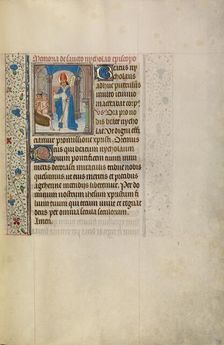 Memoria de sancto nycholao episcopo
Beatus ny
cholaus
adhuc puerulus
multo ieiunio
macerabat corp
us Ora pro no
bis beate nycho
lae Ut digni effi
ciamur promissione xpristi Oremus
Deus qui beatum nycholaum
pontificem tuum
decorasti miraculis tribue nobis
quesumus ut eius meritis et precibus
a gehenne incendiis liberemur Per do
minum nostrum ihesum xpristum fili
um tuum qui tecum vivit et regnat
deus per omnia secula seculorum
Amen